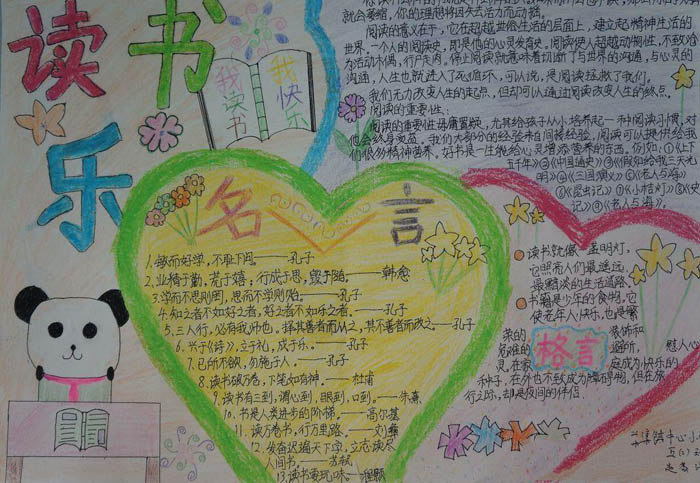 读书乐
我读书
我快乐
就会萎缩,你的理想将因失去活力而动摇。
阅读的意义在于,它在超越世俗生活的层面上,建立起精神生活的
世界。一个人的阅读史,即是他的心灵发育史。阅读使人超越动物性,不致沦
为活动木偶,行尸走肉。停止阅读就意味着切断了与世界的沟通,与心灵的
沟通,人生也就进入了死循环。可以说,是阅读拯救了我们。
我们无力改变人生的起点,但却可以通过阅读改变人生的终点。
阅读的重要性:
阅读的重要性毋庸置疑,尤其给孩子从小培养起一种阅读习惯,对
他会终身受益。我们大部分的经验来自间接经验,阅读可以提供给孩
们很多精神营养,好书是一生能给心灵增添营养的东西。例如:①《上下
五千年》②《中国通史》③《假如给我三天光
明》④《三国演义》⑤《老人与海》
⑥《昆虫记》⑦《小桔灯》⑧《
记》⑨《老人与海》。
名言
1.敏而好学,不耻下问。——孔子
2.业精于勤,荒于嬉;行成于思,毁于随。——韩愈
3.学而不思则罔,思而不学则殆。——孔子
4.知之者不如好之者,好之者不如乐之者。——孔子
5.三人行,必有我师也。择其善者而从之,其不善者而改之。——孔子
6.兴于《诗》,立于礼,成于乐。——孔子
7.己所不欲,勿施于人。——孔子
8.读书破万卷,下笔如有神。——杜甫
9.读书有三到,谓心到,眼到,口到。——朱熹
10.书是人类进步的阶梯。——高尔基
11.读万卷书,行万里路。——刘彝
12.发奋识遍天下字,立志读尽
人间书。——苏轼
13.读书要玩味。——程颢
读书就像一盏明灯,
它照亮人们最遥远,
最黯淡的生活道路。
书籍是少年的食物,它
使老年人快乐,也是繁
荣的 装饰和
危难的 避所,慰人心
灵,在家 庭成为快乐的
种子,在外也不致成为障碍物,但在旅
行之际,却是夜间的伴侣。
格言